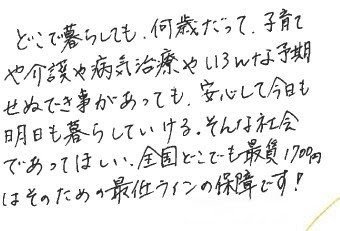 どこで暮らしても、何歳だって、子育て
や介護や病気治療やいろんな予期
せぬでき事があっても、安心して今日も
明日も暮らしていける。そんな社会
であってほしい、全国どこでも最賃1700円
はそのための最低ラインの保障です!